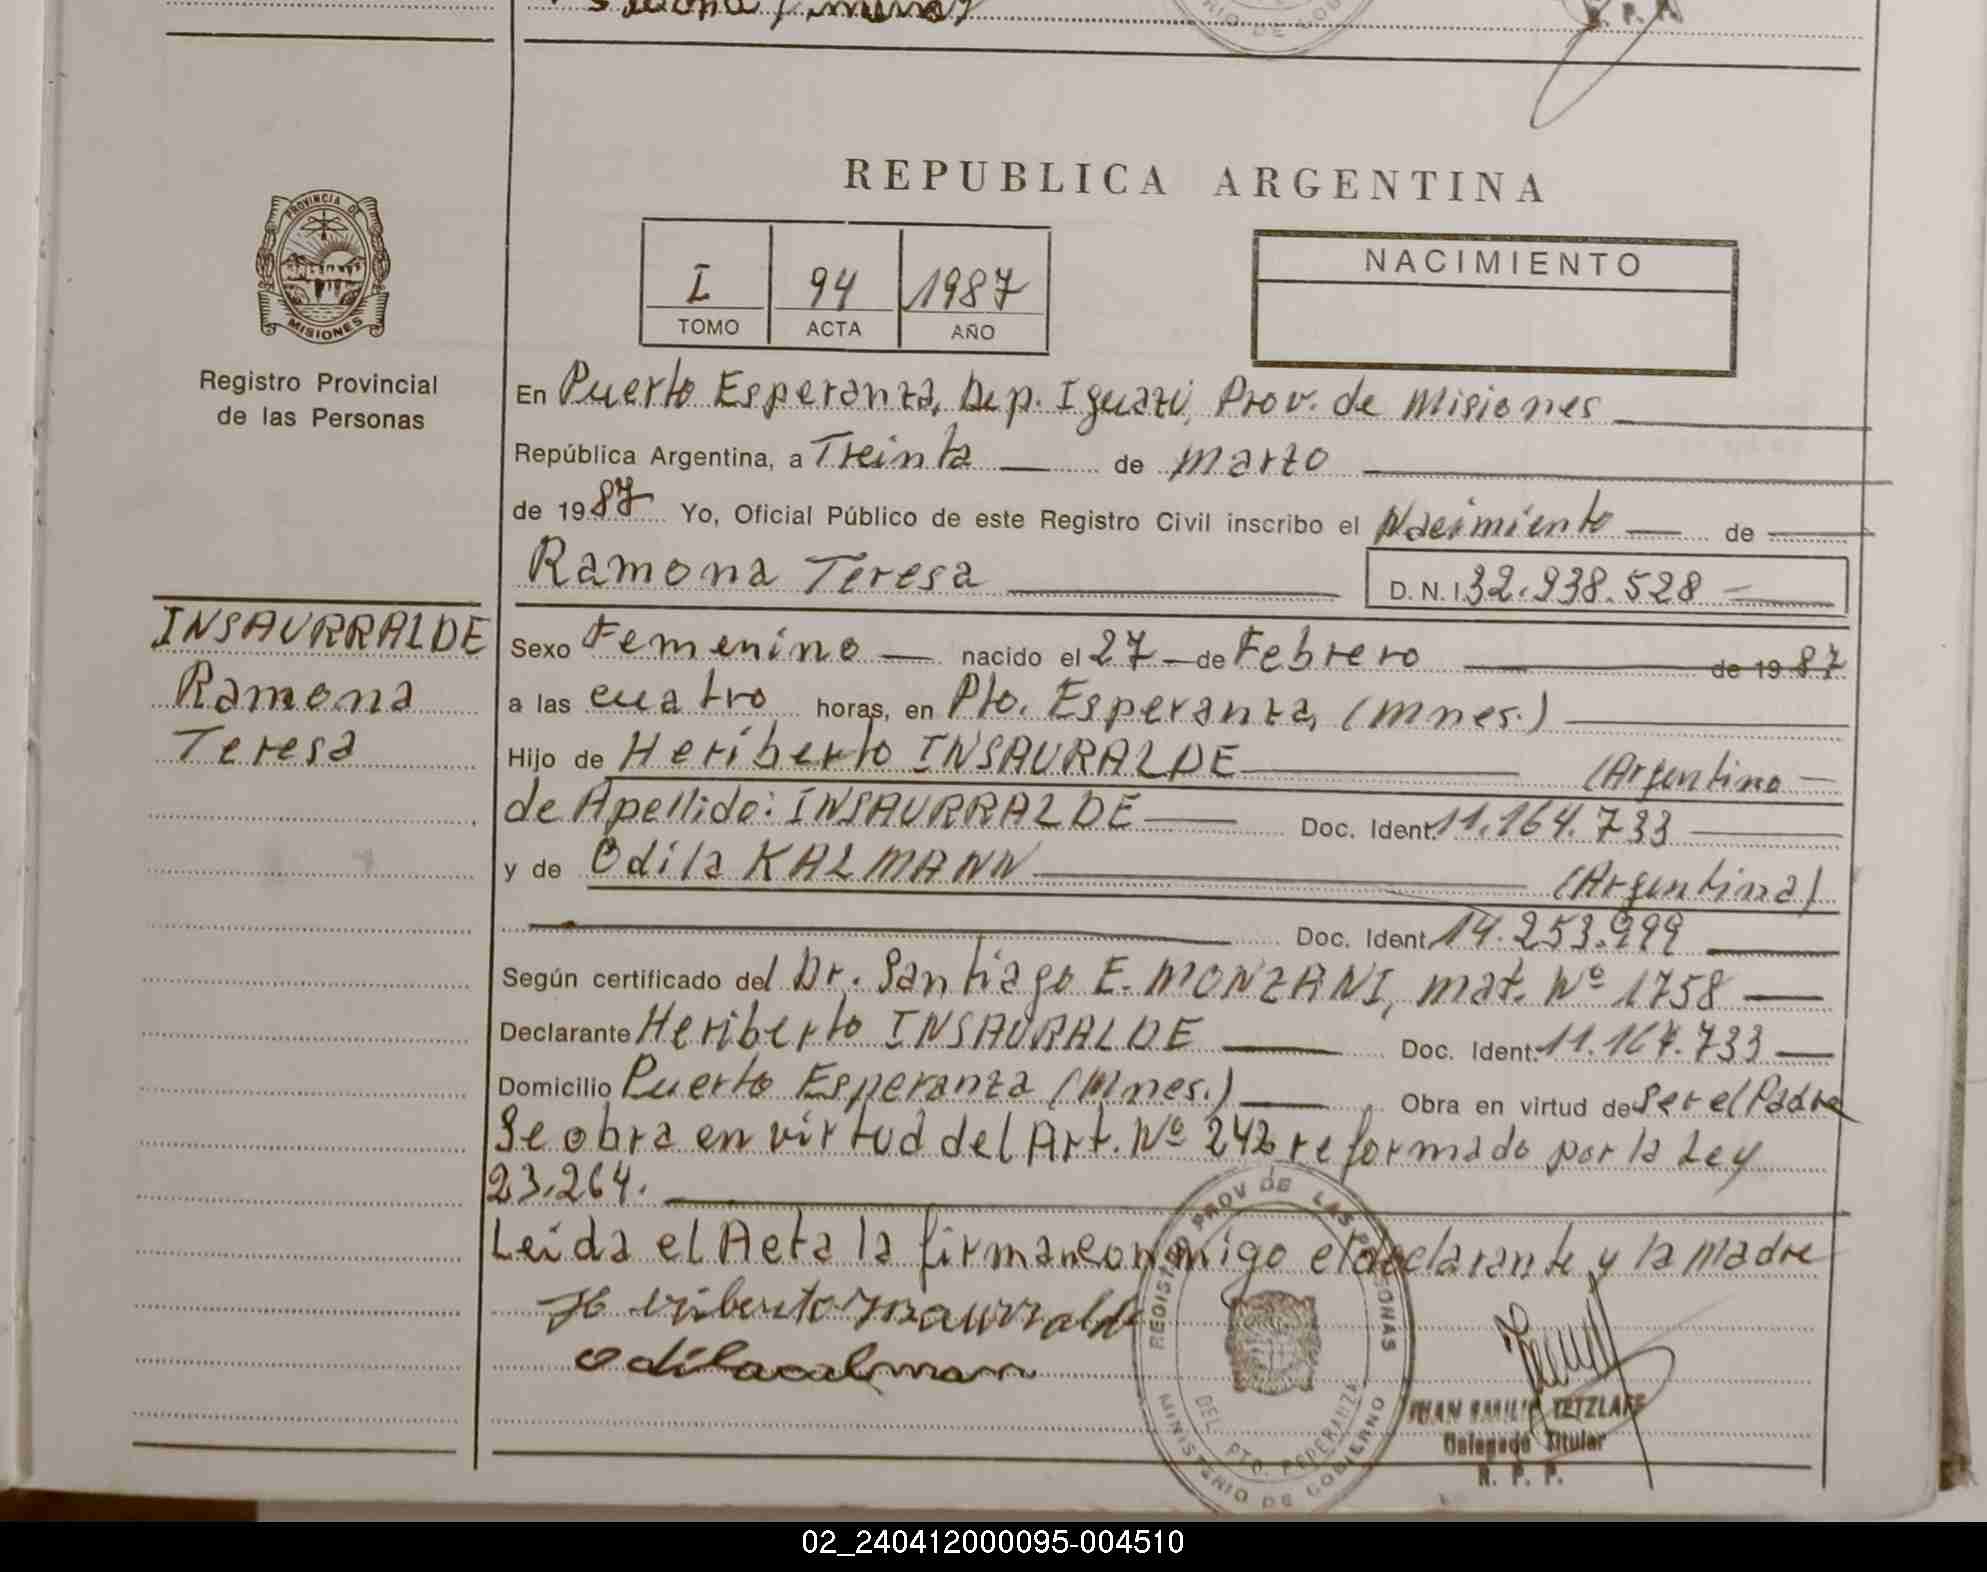 REPUBLICA ARGENTINA
PROVINCIA DE
MISIONES
Registro Provincial
de las Personas
I 94 1987
TOMO ACTA AÑO
NACIMIENTO
En Puerto Esperanza, Dep. Iguazú, Prov. de Misiones
República Argentina, a Treinta de marzo
de 1987 Yo, Oficial Público de este Registro Civil inscribo el Nacimiento de
Ramona Teresa D.N.I. 32.938.528
INSAURRALDE
Ramona
Teresa
Sexo Femenino nacido el 27 de Febrero de 1987
a las cuatro horas, en Pto. Esperanza, (Mnes.)
Hijo de Heriberto INSAURALDE (Argentino
de Apellido: INSAURRALDE Doc. Ident. 11.164.733
y de Odila KALMANN (Argentina)
Doc. Ident. 14.253.999
Según certificado del Dr. Santiago E. MONZANI, mat. Nº 1758
Declarante Heriberto INSAURALDE Doc. Ident. 11.167.733
Domicilio Puerto Esperanza (Mnes.) Obra en virtud de Ser el Padre
Se obra en virtud del Art. Nº 242 reformado por la Ley
23.264.
Leida el Acta la firman conmigo el declarante y la madre
Heriberto Insaurralde
Odila calman
REGISTRO PROV DE LAS PERSONAS
DEL PTO. ESPERANZA
MINISTERIO DE GOBIERNO
JUAN EMILIO TETZLAFF
Delegado Titular
R. P. P.
02_240412000095-004510